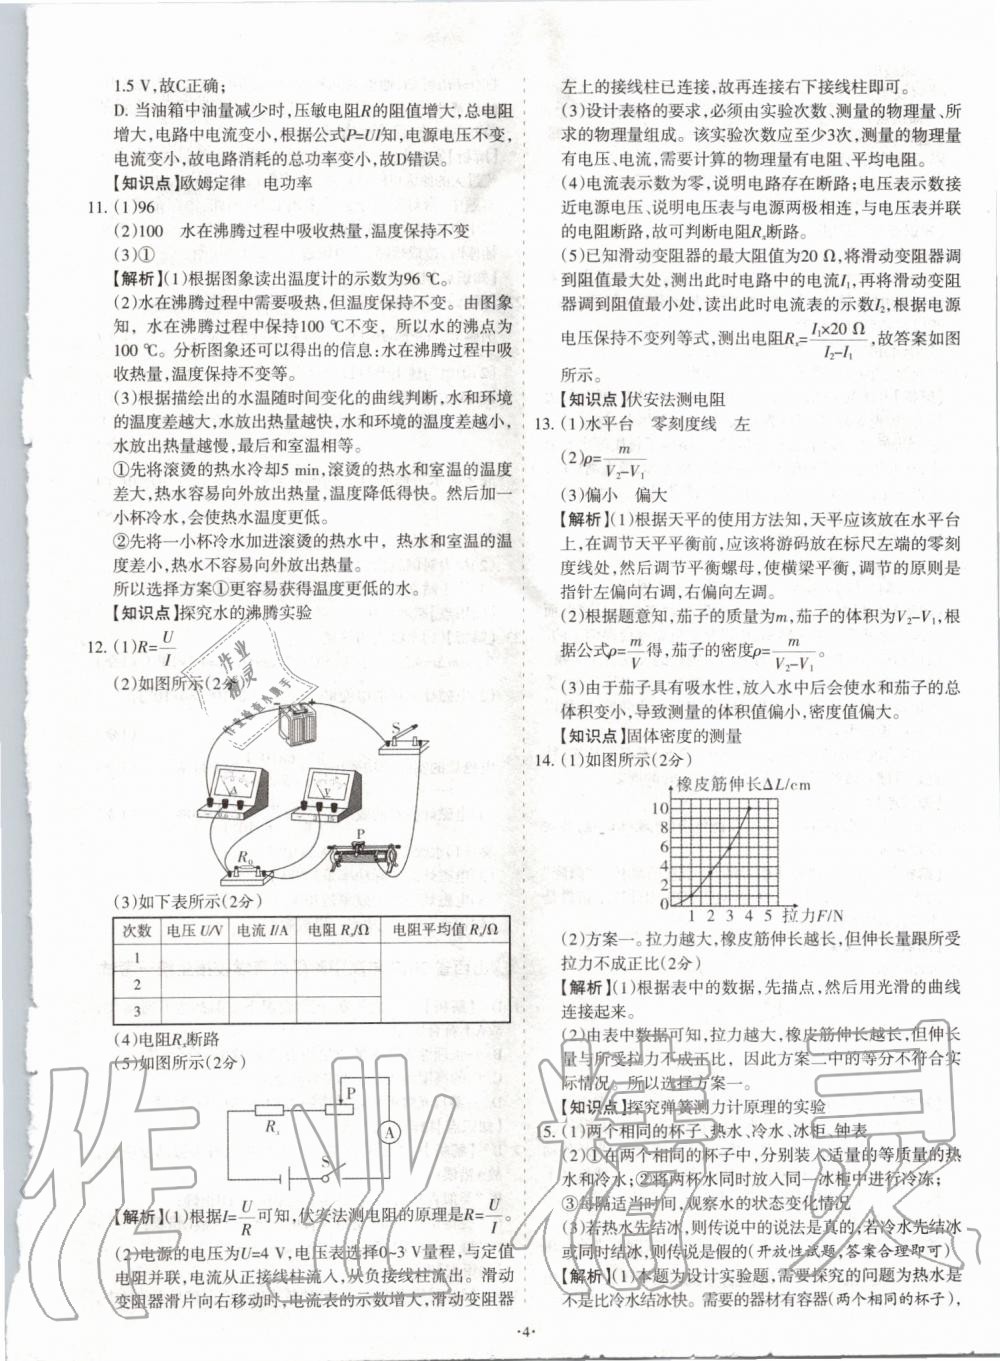 1.5 V,故C正确;
D. 当油箱中油量减少时,压敏电阻R的阻值增大,总电阻
增大,电路中电流变小,根据公式P=UI知,电源电压不变,
电流变小,故电路消耗的总功率变小,故D错误。
【知识点】欧姆定律 电功率
11. (1)96
(2)100 水在沸腾过程中吸收热量,温度保持不变
(3)①
【解析】(1)根据图象读出温度计的示数为96 ℃。
(2)水在沸腾过程中需要吸热,但温度保持不变。由图象
知, 水在沸腾过程中保持100 ℃不变, 所以水的沸点为
100 ℃。分析图象还可以得出的信息:水在沸腾过程中吸
收热量,温度保持不变等。
(3)根据描绘出的水温随时间变化的曲线判断,水和环境
的温度差越大,水放出热量越快,水和环境的温度差越小,
水放出热量越慢,最后和室温相等。
①先将滚烫的热水冷却5 min,滚烫的热水和室温的温度
差大,热水容易向外放出热量,温度降低得快。然后加一
小杯冷水,会使热水温度更低。
②先将一小杯冷水加进滚烫的热水中, 热水和室温的温
度差小,热水不容易向外放出热量。
所以选择方案①更容易获得温度更低的水。
【知识点】探究水的沸腾实验
12. (1)R=U/I
(2)如图所示(2分)
作业
精灵
作业检查小助手
S
A
V
R₀
P
(3)如下表所示(2分)
次数 电压 U/V 电流 I/A 电阻 Rₓ/Ω 电阻平均值 Rₓ/Ω
1
2
3
(4)电阻Rₓ断路
(5)如图所示(2分)
P
Rₓ
A
S
【解析】(1)根据I=U/R可知,伏安法测电阻的原理是R=U/I。
(2)电源的电压为U=4 V,电压表选择0~3 V量程,与定值
电阻并联,电流从正接线柱流入,从负接线柱流出。滑动
变阻器滑片向右移动时,电流表的示数增大,滑动变阻器
左上的接线柱已连接,故再连接右下接线柱即可。
(3)设计表格的要求,必须由实验次数、测量的物理量、所
求的物理量组成。该实验次数应至少3次,测量的物理量
有电压、电流,需要计算的物理量有电阻、平均电阻。
(4)电流表示数为零,说明电路存在断路;电压表示数接
近电源电压,说明电压表与电源两极相连,与电压表并联
的电阻断路,故可判断电阻Rₓ断路。
(5)已知滑动变阻器的最大阻值为20 Ω,将滑动变阻器调
到阻值最大处,测出此时电路中的电流I₁,再将滑动变阻
器调到阻值最小处,读出此时电流表的示数I₂,根据电源
电压保持不变列等式,测出电阻Rₓ=I₁×20 Ω/I₂-I₁,故答案如图
所示。
【知识点】伏安法测电阻
13. (1)水平台 零刻度线 左
(2)ρ=m/V₂-V₁
(3)偏小 偏大
【解析】(1)根据天平的使用方法知,天平应该放在水平台
上,在调节天平平衡前,应该将游码放在标尺左端的零刻
度线处,然后调节平衡螺母,使横梁平衡,调节的原则是
指针左偏向右调,右偏向左调。
(2)根据题意知,茄子的质量为m,茄子的体积为V₂-V₁,根
据公式ρ=m/V得,茄子的密度ρ=m/V₂-V₁。
(3)由于茄子具有吸水性,放入水中后会使水和茄子的总
体积变小,导致测量的体积值偏小,密度值偏大。
【知识点】固体密度的测量
14. (1)如图所示(2分)
橡皮筋伸长ΔL/cm
10
8
6
4
2
0
1 2 3 4 5 拉力F/N
(2)方案一。拉力越大,橡皮筋伸长越长,但伸长量跟所受
拉力不成正比(2分)
【解析】(1)根据表中的数据,先描点,然后用光滑的曲线
连接起来。
(2)由表中数据可知,拉力越大,橡皮筋伸长越长,但伸长
量与所受拉力不成正比, 因此方案二中的等分不符合实
际情况。所以选择方案一。
【知识点】探究弹簧测力计原理的实验
15. (1)两个相同的杯子、热水、冷水、冰柜、钟表
(2)①在两个相同的杯子中,分别装入适量的等质量的热
水和冷水;②将两杯水同时放入同一冰柜中进行冷冻;
③每隔适当时间,观察水的状态变化情况
(3)若热水先结冰,则传说中的说法是真的,若冷水先结冰
或同时结冰,则传说是假的(开放性试题,答案合理即可)
【解析】(1)本题为设计实验题,需要探究的问题为热水是
不是比冷水结冰快。需要的器材有容器(两个相同的杯子),
·4·
作业精灵